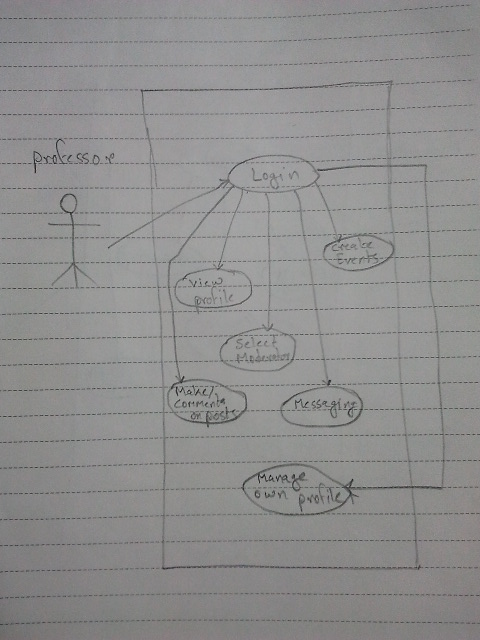 professor
Login
Create
Events
View
profile
Select
Moderator
Make/
Comments
on posts
Messaging
Manage
own profile